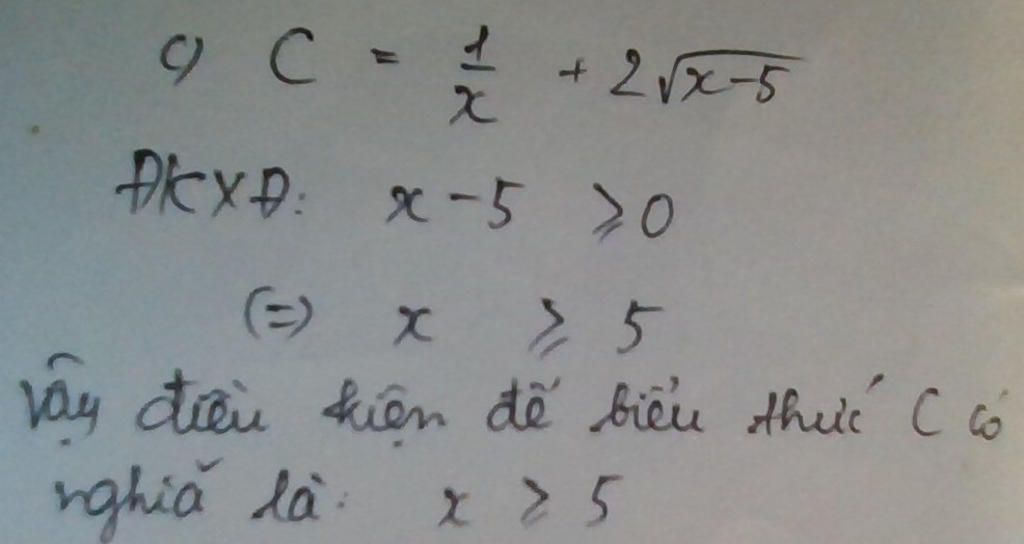 c) C = 1/x + 2√(x-5)
ĐKXĐ: x - 5 ≥ 0
(=) x ≥ 5
Vậy điều kiện để biểu thức C có
nghiã là: x ≥ 5